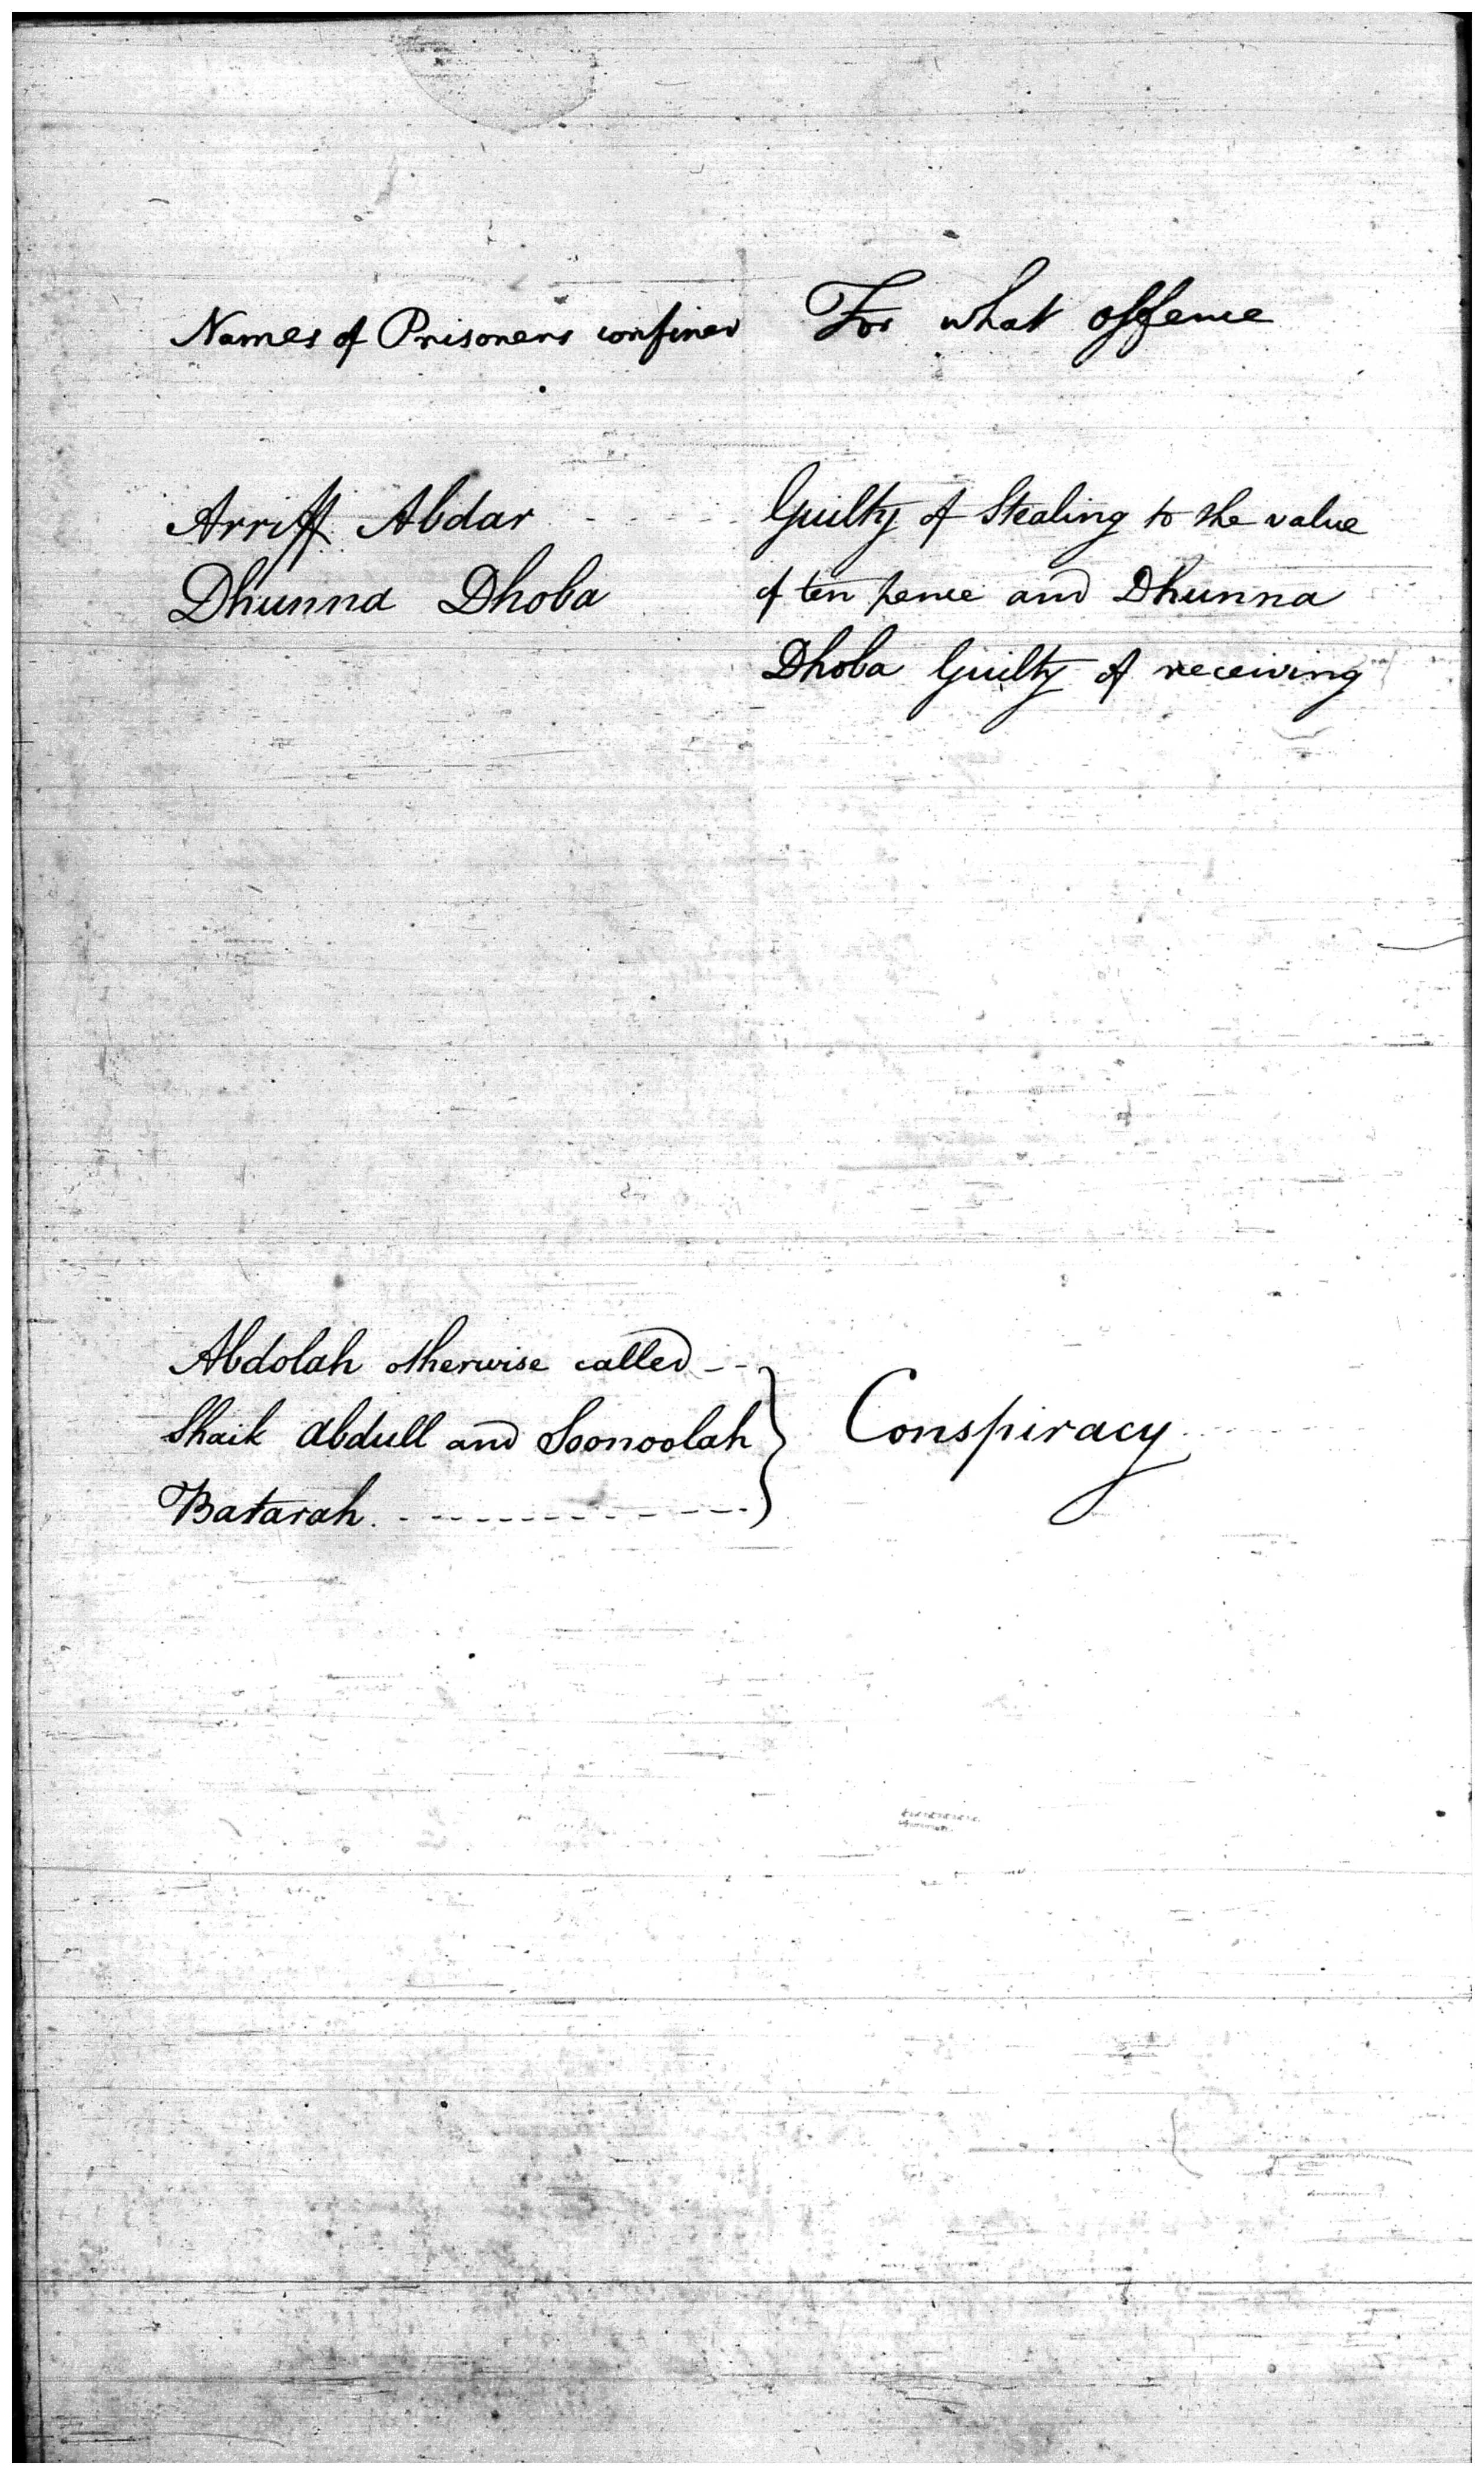 Names of Prisoners confined For what offence
Arriff Abdar - - - - Guilty of Stealing to the value
Dhunna Dhoba of ten pence and Dhunna
Dhoba Guilty of receiving
Abdolah otherwise called - -
Shaik Abdull and Soonoolah } Conspiracy
Batarah. - - - - - - - - - - -